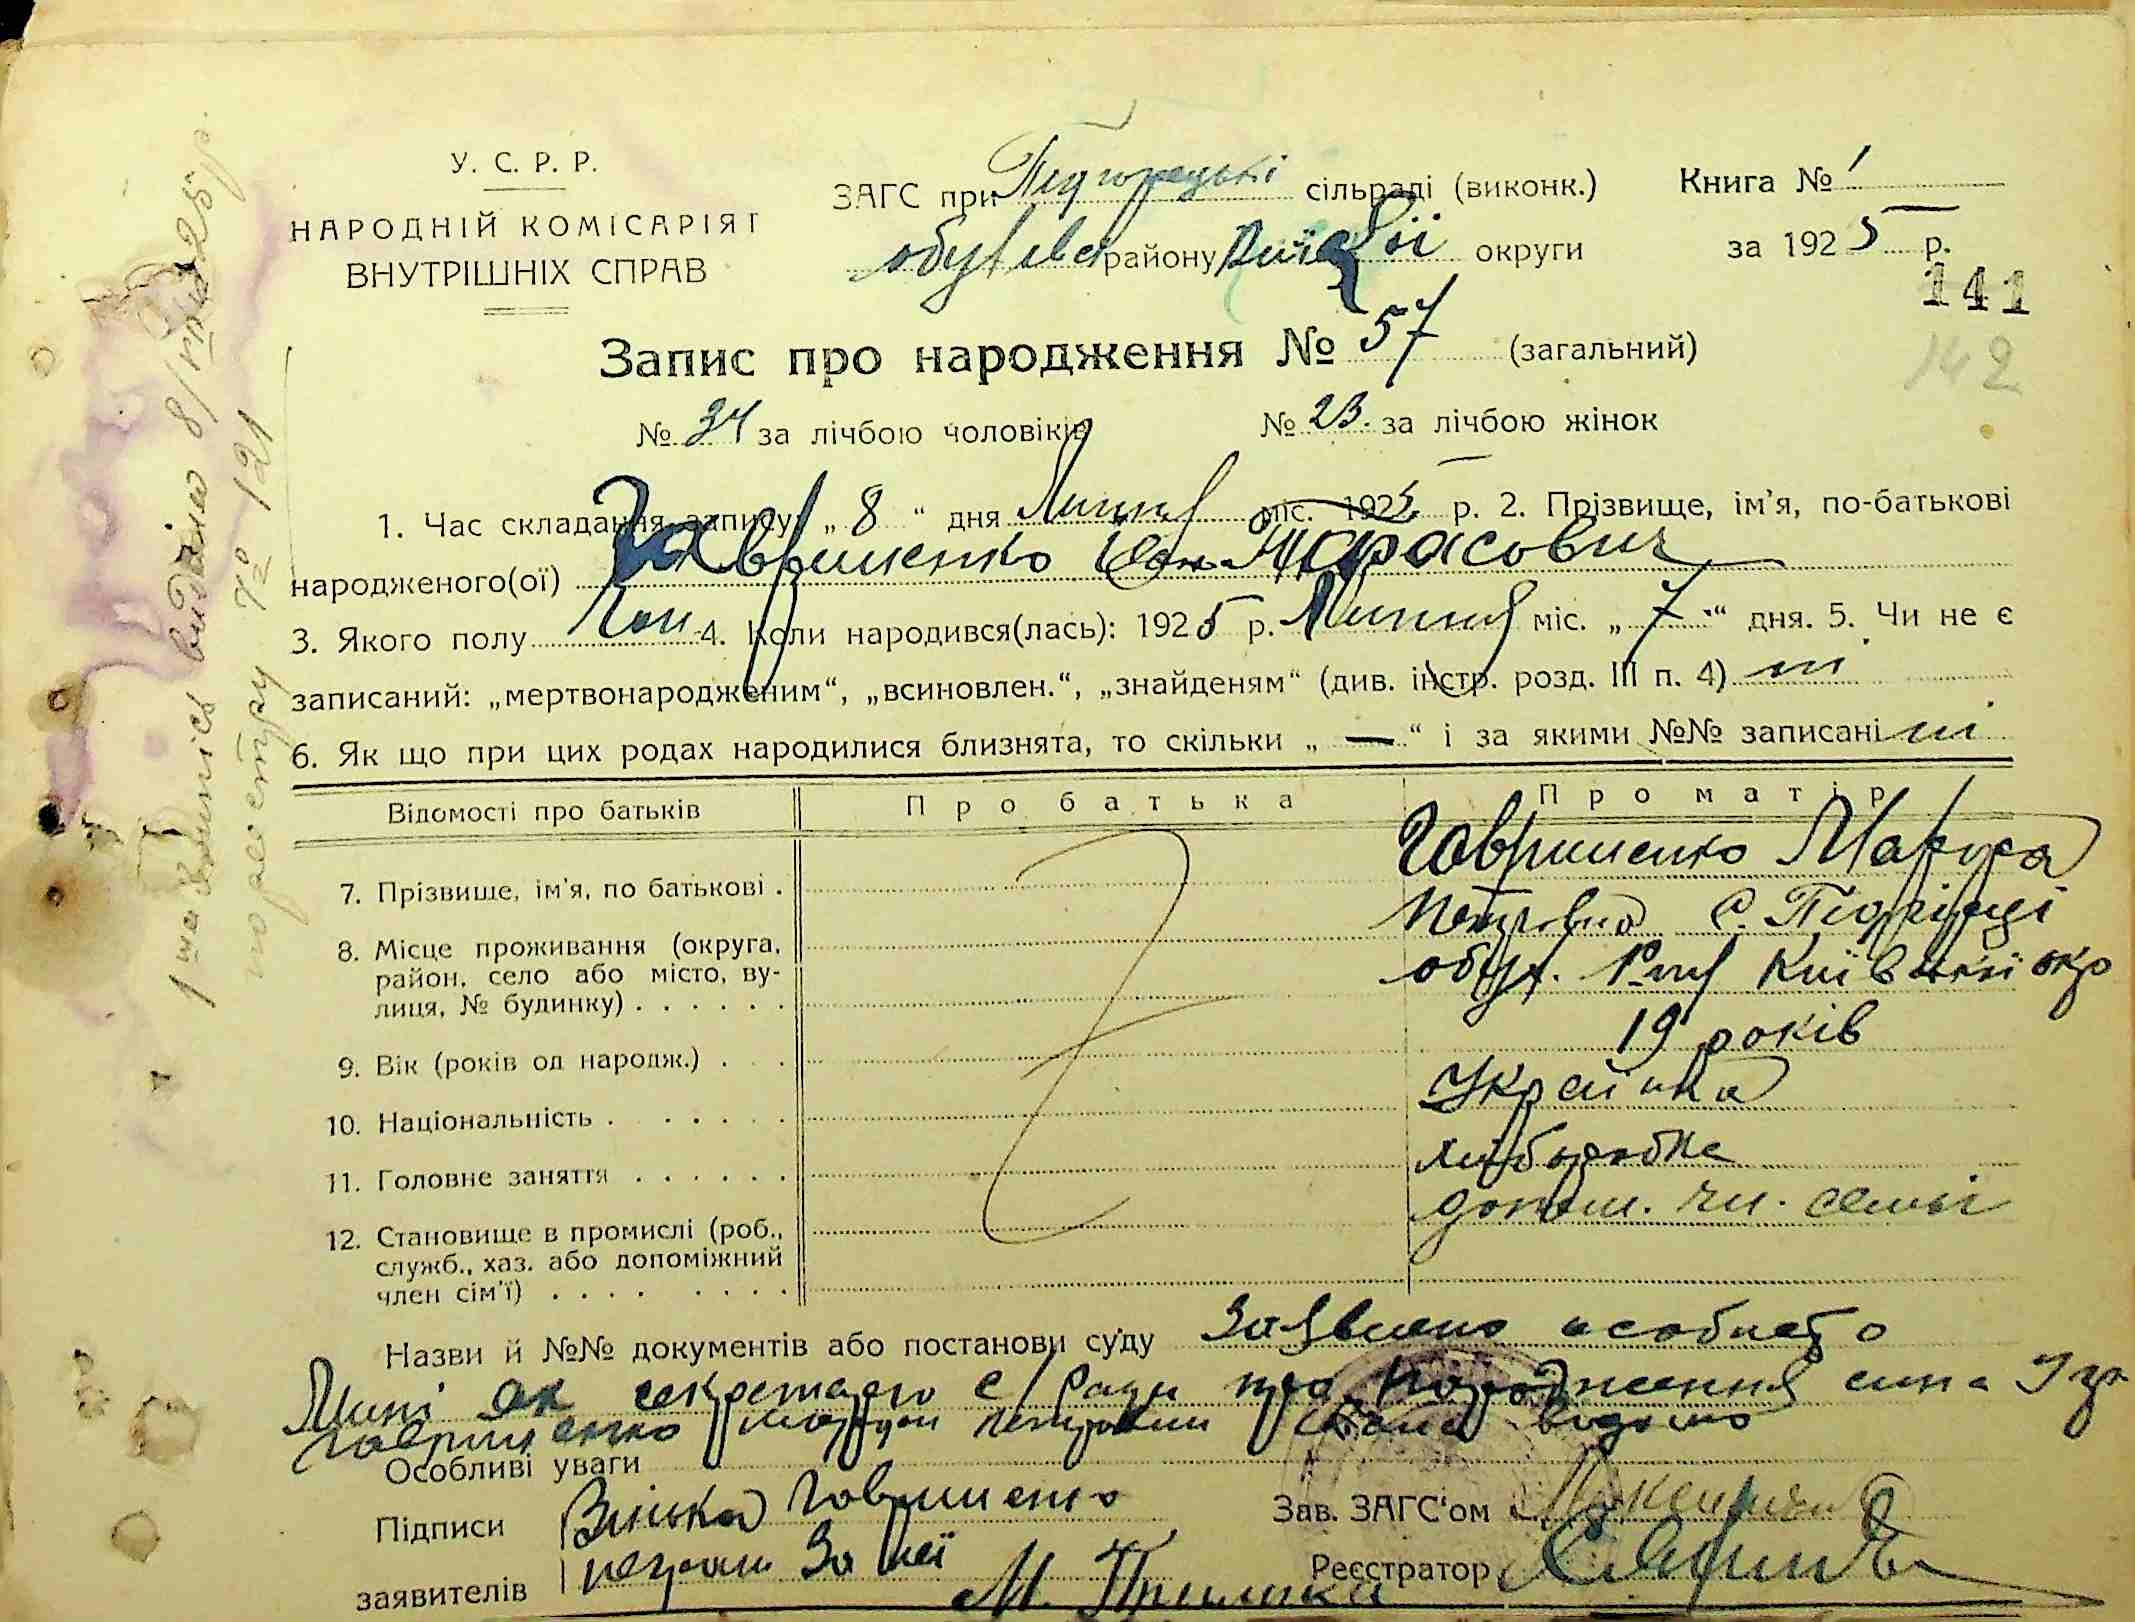 У. С. Р. Р.
НАРОДНІЙ КОМІСАРІЯТ
ВНУТРІШНІХ СПРАВ
ЗАГС при Підгорецькі сільраді (виконк.)
району округи
Книга № 1
за 1925 р.
141
142
Запис про народження № 57 (загальний)
№ 34 за лічбою чоловіків № 23. за лічбою жінок
1. Час складання запису: „ 8 “ дня Липня міс. 1925 р. 2. Прізвище, ім'я, по-батькові
народженого(ої) Гавриленко Іван Тарасович
3. Якого полу Чол. 4. Коли народився(лась): 1925 р. Липня міс. „ 7 “ дня. 5. Чи не є
записаний: „мертвонародженим“, „всиновлен.“, „знайденям“ (див. інстр. розд. III п. 4) ні
6. Як що при цих родах народилися близнята, то скільки „ — “ і за якими №№ записані ні
Відомості про батьків Про батька Про матір
7. Прізвище, ім'я, по батькові . Гавриленко
8. Місце проживання (округа, Петрівна с. Підгірці
район, село або місто, ву- Київської окр
лиця, № будинку) . . . . . .
9. Вік (років од народж.) . . . 19 років
10. Національність . . . . . . Українка
11. Головне заняття . . . . . . хліборобка
12. Становище в промислі (роб., допом. чл. семьі
служб., хаз. або допоміжний
член сім'ї) . . . . . . . .
Назви й №№ документів або постанови суду Заявлено особисто
Мині як секретарю с/Ради про народження сина
Гавриленко Петровни
Особливі уваги
Підписи Гавриленко
заявителів неграм за неї
Зав. ЗАГС'ом
Реєстратор